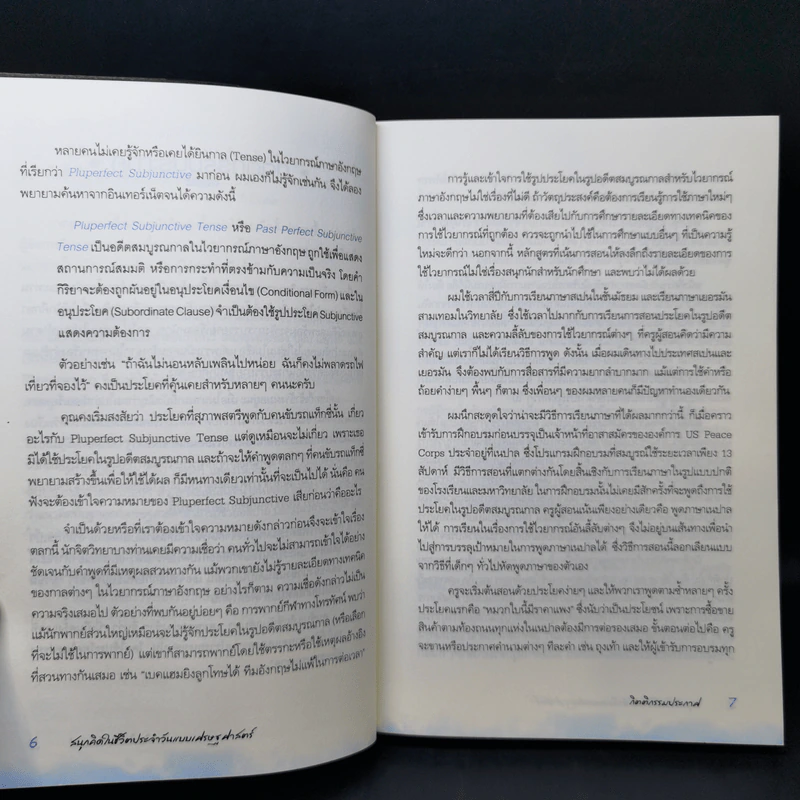 หลายคนไม่เคยรู้จักหรือเคยได้ยินกาล (Tense) ในไวยากรณ์ภาษาอังกฤษ
ที่เรียกว่า Pluperfect Subjunctive มาก่อน ผมเองก็ไม่รู้จักเช่นกัน จึงได้ลอง
พยายามค้นหาจากอินเทอร์เน็ตจนได้ความดังนี้
Pluperfect Subjunctive Tense หรือ Past Perfect Subjunctive
Tense เป็นอดีตสมบูรณกาลในไวยากรณ์ภาษาอังกฤษ ถูกใช้เพื่อแสดง
สถานการณ์สมมติ หรือการกระทำที่ตรงข้ามกับความเป็นจริง โดยคำ
กิริยาจะต้องถูกผันอยู่ในอนุประโยคเงื่อนไข (Conditional Form) และใน
อนุประโยค (Subordinate Clause) จำเป็นต้องใช้รูปประโยค Subjunctive
แสดงความต้องการ
ตัวอย่างเช่น “ถ้าฉันไม่นอนหลับเพลินไปหน่อย ฉันก็คงไม่พลาดรถไฟ
เที่ยวที่จองไว้” คงเป็นประโยคที่คุ้นเคยสำหรับหลายๆ คนนะครับ
คุณคงเริ่มสงสัยว่า ประโยคที่สุภาพสตรีพูดกับคนขับรถแท็กซี่นั้น เกี่ยว
อะไรกับ Pluperfect Subjunctive Tense แต่ดูเหมือนจะไม่เกี่ยว เพราะเธอ
มิได้ใช้ประโยคในรูปอดีตสมบูรณกาล และถ้าจะให้คำพูดตลกๆ ที่คนขับแท็กซี่
พยายามสร้างขึ้นเพื่อให้ได้ผล ก็มีหนทางเดียวเท่านั้นที่จะเป็นไปได้ นั่นคือ คน
ฟังจะต้องเข้าใจความหมายของ Pluperfect Subjunctive เสียก่อนว่าคืออะไร
จำเป็นด้วยหรือที่เราต้องเข้าใจความหมายดังกล่าวก่อนจึงจะเข้าใจเรื่อง
ตลกนี้ นักจิตวิทยาบางท่านเคยมีความเชื่อว่า คนทั่วไปจะไม่สามารถเข้าใจได้อย่าง
ชัดเจนกับคำพูดที่มีเหตุผลสวนทางกัน แม้พวกเขายังไม่รู้รายละเอียดทางเทคนิค
ของกาลต่างๆ ในไวยากรณ์ภาษาอังกฤษ อย่างไรก็ตาม ความเชื่อดังกล่าวไม่เป็น
ความจริงเสมอไป ตัวอย่างที่พบกันอยู่บ่อยๆ คือ การพากย์กีฬาทางโทรทัศน์ พบว่า
แม้นักพากย์ส่วนใหญ่เหมือนจะไม่รู้จักประโยคในรูปอดีตสมบูรณกาล (หรือเลือก
ที่จะไม่ใช้ในการพากย์) แต่เขาก็สามารถพากย์โดยใช้ตรรกะหรือใช้เหตุผลอ้างอิง
ที่สวนทางกันเสมอ เช่น “เบคแฮมยิงลูกโทษได้ ทีมอังกฤษไม่แพ้ในการต่อเวลา”
6 สนุกคิดในชีวิตประจำวันแบบเศรษฐศาสตร์
การรู้และเข้าใจการใช้รูปประโยคในรูปอดีตสมบูรณกาลสำหรับไวยากรณ์
ภาษาอังกฤษไม่ใช่เรื่องที่ไม่ดี ถ้าวัตถุประสงค์คือต้องการเรียนรู้การใช้ภาษาใหม่ๆ
ซึ่งเวลาและความพยายามที่ต้องเสียไปกับการศึกษารายละเอียดทางเทคนิคของ
การใช้ไวยากรณ์ที่ถูกต้อง ควรจะถูกนำไปใช้ในการศึกษาแบบอื่นๆ ที่เป็นความรู้
ใหม่จะดีกว่า นอกจากนี้ หลักสูตรที่เน้นการสอนให้ลงลึกถึงรายละเอียดของการ
ใช้ไวยากรณ์ไม่ใช่เรื่องสนุกนักสำหรับนักศึกษา และพบว่าไม่ได้ผลด้วย
ผมใช้เวลาสี่ปีกับการเรียนภาษาสเปนในชั้นมัธยม และเรียนภาษาเยอรมัน
สามเทอมในวิทยาลัย ซึ่งใช้เวลาไปมากกับการเรียนการสอนประโยคในรูปอดีต
สมบูรณกาล และความลี้ลับของการใช้ไวยากรณ์ต่างๆ ที่ครูผู้สอนคิดว่ามีความ
สำคัญ แต่เราก็ไม่ได้เรียนวิธีการพูด ดังนั้น เมื่อผมเดินทางไปประเทศสเปนและ
เยอรมัน จึงต้องพบกับการสื่อสารที่มีความยากลำบากมาก แม้แต่การใช้คำหรือ
ถ้อยคำง่ายๆ พื้นๆ ก็ตาม ซึ่งเพื่อนๆ ของผมหลายคนก็มีปัญหาทำนองเดียวกัน
ผมนึกสะดุดใจว่าน่าจะมีวิธีการเรียนภาษาที่ได้ผลมากกว่านี้ ก็เมื่อคราว
เข้ารับการฝึกอบรมก่อนบรรจุเป็นเจ้าหน้าที่อาสาสมัครขององค์การ US Peace
Corps ประจำอยู่ที่เนปาล ซึ่งโปรแกรมฝึกอบรมที่สมบูรณ์ใช้ระยะเวลาเพียง 13
สัปดาห์ มีวิธีการสอนที่แตกต่างกันโดยสิ้นเชิงกับการเรียนภาษาในรูปแบบปกติ
ของโรงเรียนและมหาวิทยาลัย ในการฝึกอบรมนั้นไม่เคยมีสักครั้งที่จะพูดถึงการใช้
ประโยคในรูปอดีตสมบูรณกาล ครูผู้สอนเน้นเพียงอย่างเดียวคือ พูดภาษาเนปาล
ให้ได้ การเรียนในเรื่องการใช้ไวยากรณ์อันลี้ลับต่างๆ จึงไม่อยู่บนเส้นทางเพื่อนำ
ไปสู่การบรรลุเป้าหมายในการพูดภาษาเนปาลได้ ซึ่งวิธีการสอนนี้ลอกเลียนแบบ
จากวิธีที่เด็กๆ ทั่วไปหัดพูดภาษาของตัวเอง
ครูจะเริ่มต้นสอนด้วยประโยคง่ายๆ และให้พวกเราพูดตามซ้ำหลายๆ ครั้ง
ประโยคแรกคือ “หมวกใบนี้มีราคาแพง” ซึ่งนับว่าเป็นประโยชน์ เพราะการซื้อขาย
สินค้าตามท้องถนนทุกแห่งในเนปาลต้องมีการต่อรองเสมอ ขั้นตอนต่อไปคือ ครู
จะขานหรือประกาศคำนามต่างๆ ทีละคำ เช่น ถุงเท้า และให้ผู้เข้ารับการอบรมทุก
กิตติกรรมประกาศ 7